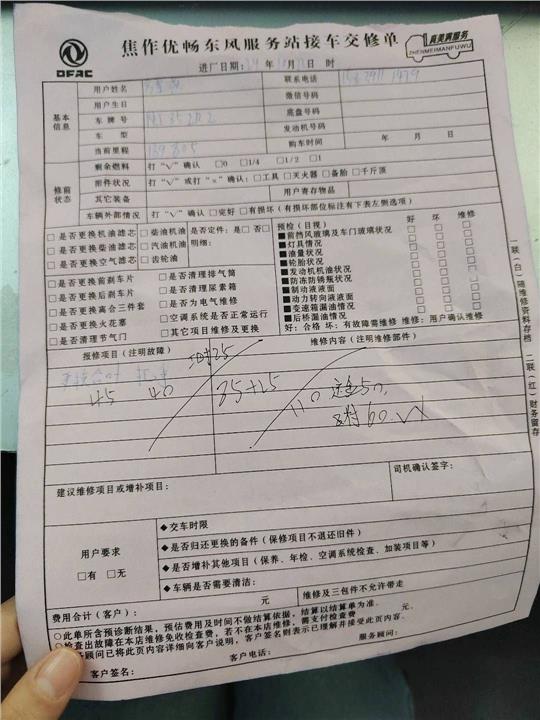 DFAC
焦作优畅东风服务站接车交修单
真美满服务
ZHENMEIMANFUWU
进厂日期: 年 月 日 时
基本信息
用户姓名
联系电话
用户生日
微信号码
车牌号
底盘号码
车型
发动机号码
当前里程
购车时间 年 月 日
修前状态
剩余燃料 打“√”确认 □0 □1/4 □1/2 □1
附件状况 打“√”或打“×”确认:□工具 □灭火器 □备胎 □千斤顶
其它装备
用户寄存物品
车辆外部情况 打“√”确认 □完好 □有损坏(有损坏部位标注有下表左侧选项)
□是否更换机油滤芯 □柴油机油 是否定件:是□ 否□
□是否更换柴油滤芯 □汽油机油 明细:
□是否更换空气滤芯 □齿轮油
□是否更换前刹车片 □是否清理排气筒
□是否更换后刹车片 □是否清理尿素箱
□是否更换离合三件套 □是否为电气维修
□是否更换火花塞 □空调系统是否正常运行
□是否清理节气门 □其它项目维修及更换
预检(目视) 好 坏 维修
■前挡风玻璃及车门玻璃状况 □ □ □
■灯具情况 □ □ □
■油量状况 □ □ □
■轮胎状况 □ □ □
■发动机机油状况 □ □ □
■防冻防锈瓶状况 □ □ □
■制动液液面 □ □ □
■动力转向液液面 □ □ □
■变速箱漏油情况 □ □ □
■后桥漏油情况 □ □ □
好:合格 坏:有故障需维修 维修:用户确认维修
报修项目(注明故障)
维修内容(注明维修部件)
45 40 85+25 110
60
建议维修项目或增补项目:
司机确认签字:
用户要求
□有 □无
◆交车时限
◆是否归还更换的备件(保修项目不退还旧件)
◆是否增补其他项目(保养、年检、空调系统检查、加装项目等)
◆车辆是否需要清洁:
维修及三包件不允许带走
费用合计(客户): 元
元。
○此单所含预诊断结果,预估费用及时间不做结算依据,结算以结算单为准。
○检查出故障在本店维修免收检查费,若不在本店维修,需支付检查费
顾问已将此页内容详细向客户说明,客户签名则表示已理解并接受此页内容。
客户签名:
客户电话:
服务顾问:
一联(白)随维修资料存档
二联(红)财务留存